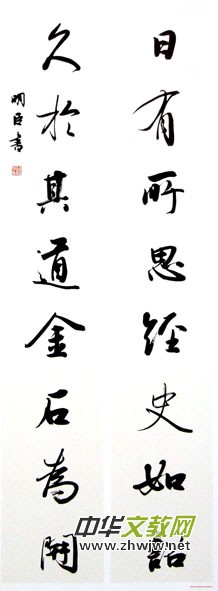 日有所思經史如詔
久於其道金石為開
明臣書
中华文教网
www.zhwjw.net